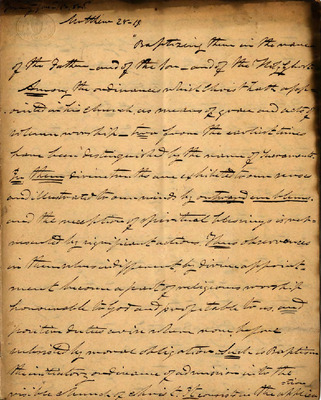 Matthew 28-19
"Baptizing them in the name
of the Father and of the Son and of the Holy Ghost
Among the ordinances which Christ hath appo-
inted in his church as means of grace and acts of
solemn worship two from the earliest times
have been distinguished by the name of Sacraments.
In them divine truths are exhibited to our senses
and illustrated to our minds by outward emblems.
and the reception of spiritual blessings is repre
sented by significant actions. Thus observances
in themselves indifferent, by divine appoint-
ment become a part of religious worship
honourable to God and profitable to us, and
positive duties arise where none before
enforced by moral obligation. Such is Baptism
the initiatory ordinance of admission into the
visible Church of Christ. It consists in the